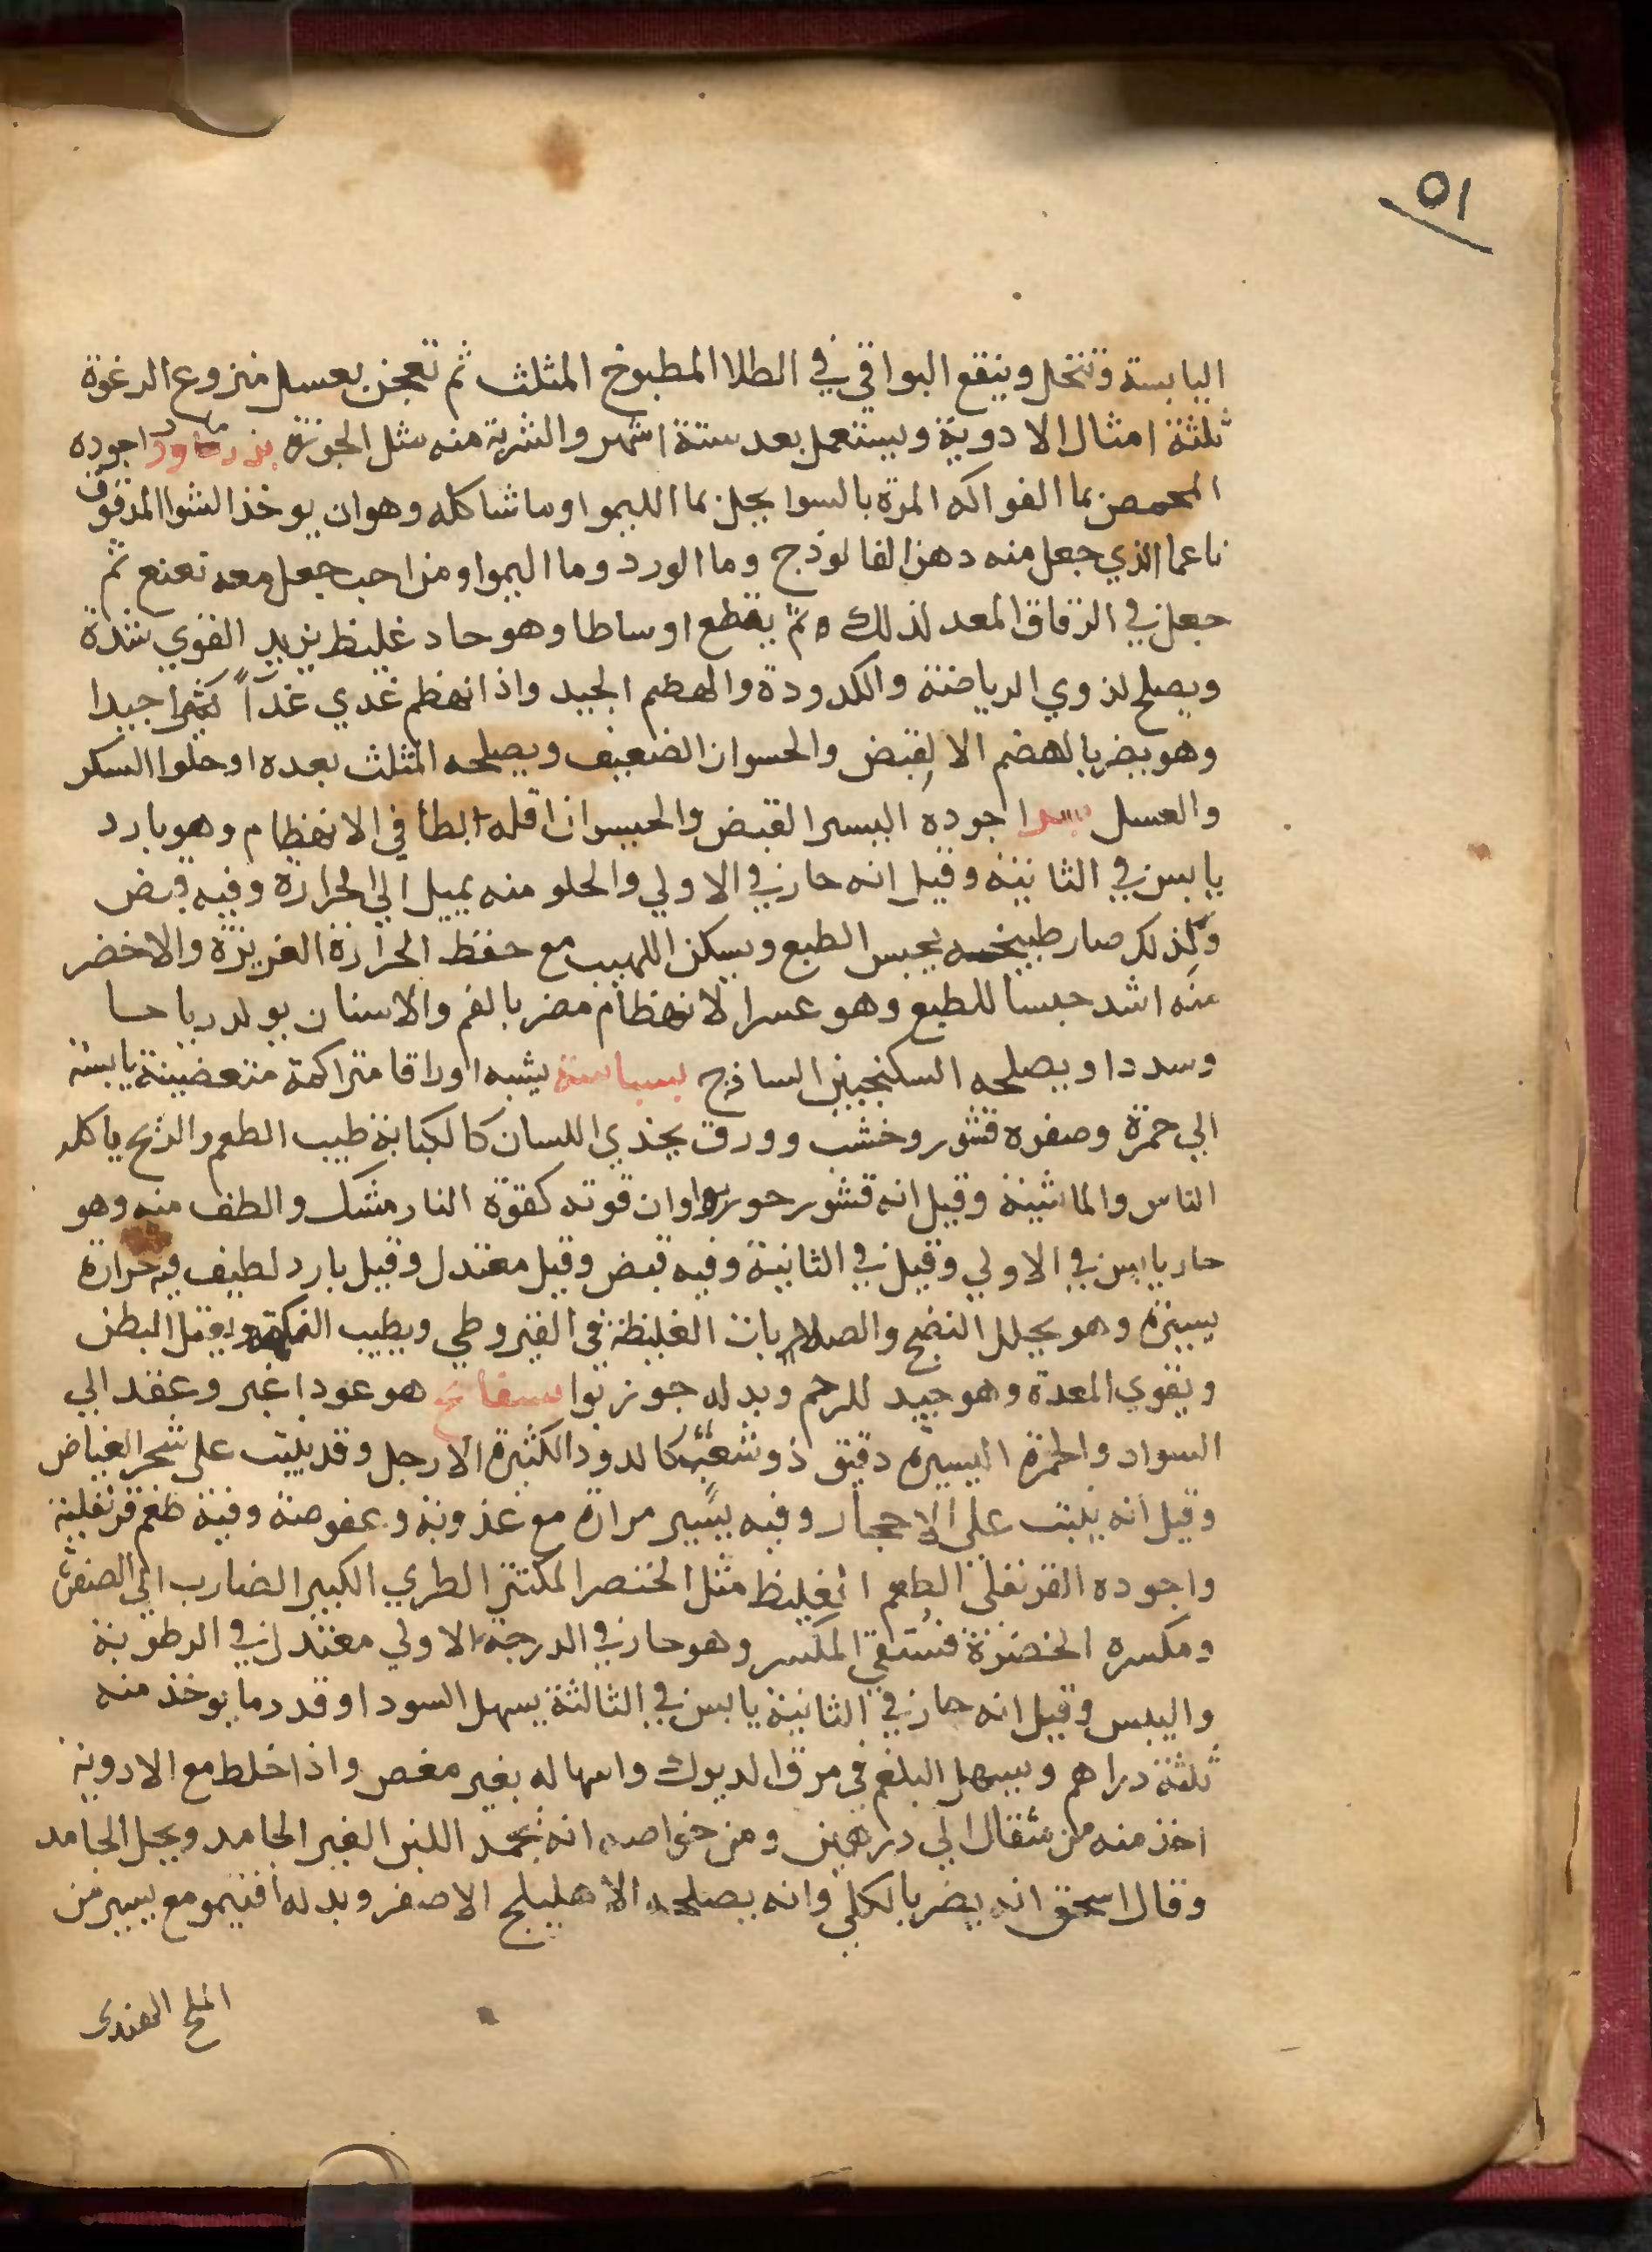 ٥١
اليابسة وتنخل وينقع البواقي في الطلا المطبوخ المثلث ثم تعجن بعسل منزوع الرغوة
ثلثة امثال الادوية ويستعمل بعد ستة اشهر والشربة منه مثل الجوزة بزماورد اجوده
المحمص بما الفواكه المزة بالسوا بجلز بما الليمو او ما شاكله وهو ان يوخذ الشوا المدقوق
ناعما الذي جعل منه دهن الفالوذج وما الورد وما اليموا ومن احب جعل معه نعنع ثم
جعل في الرقاق المعد لذلك ثم يقطع اوساطا وهو حاد غليظ يزيد القوي شدة
ويصلح لذوي الرياضة والكدودة والهضم الجيد واذا انهظم غدي غدآً كثيرا جيدا
وهو يضر بالهضم الا لقبض والحسوان الضعيف ويصلحه المثلث بعده او حلوا السكر
والعسل اجوده البسر القبض والحبسوان اقله ابطا في الانهظام وهو بارد
يابس في الثانية وقيل انه حار في الاولي والحلو منه يميل الي الحرارة وفيه قبض
وكذلك صار طبيخه يحبس الطبع ويسكن اللهيب مع حفظ الحرارة الغريزة والاخضر
منه اشد حبسا للطبع وهو عسر الانهظام مضر بالفم والاسنان يولد رياحا
وسددا ويصلحه السكنجبين الساذج بسباسة يشبه اوراقا متراكمة متغضنة يابسة
الي حمرة وصفره قشور وخشب وورق يحذي اللسان كالكبابة طيب الطعم والريح ياكله
الناس والماشية وقيل انه قشور جوزبوا وان قوته كقوة النارمشك والطف منه وهو
حار يابس في الاولي وقيل في الثانية وفيه قبض وقيل معتدل وقيل بارد لطيف فيه حرارة
يسيرة وهو يحلل النضج والصلابات الغليظة في القيروطي ويطيب النكهة ويعقل البطن
ويقوي المعدة وهو جيد للرحم وبدله جوزبوا بسفايج هو عود اغبر وعقد الي
السواد والحمرة اليسيرة دقيق ذو شعب كالدود الكثيرة الارجل وقد ينبت علي شجر الغياض
وقيل انه ينبت علي الاحجار وفيه يسير مرارة مع عذوبة وعفوصة وفية طعم قرنفلية
واجوده القرنفلي الطعم الغليظ مثل الخنصر المكتنز الطري الكبير الضارب الي الصفرة
ومكسره الخضرة فستقي المكسر وهو حار في الدرجة الاولي معتدل في الرطوبة
واليبس وقيل انه حار في الثانية يابس في الثالثة يسهل السودا وقدر ما يوخذ منه
ثلثة دراهم ويسهل البلغم في مرق الديوك واسهاله بغير مغص واذا خلط مع الادوية
اخذ منه من مثقال الي درهمين ومن خواصه انه يجمد اللبن الغير الجامد ويحل الجامد
وقال اسحق انه يضر بالكلي وانه يصلحه الاهليلج الاصفر وبدله افتيمو مع يسير من
الملح الهندي